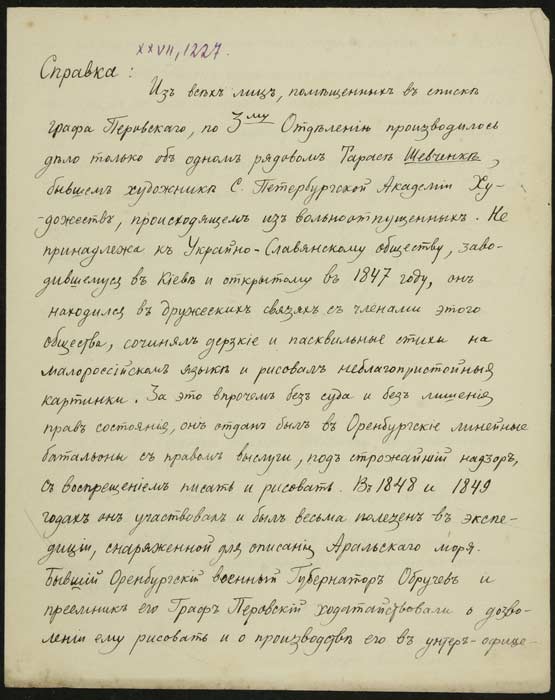 XXVII, 1227.
Справка:
Изъ всѣхъ лицъ, помѣщенныхъ въ спискѣ
графа Перовскаго, по 3му Отдѣленію производилось
дѣло только объ одномъ рядовомъ Тарасѣ Шевченкѣ,
бывшемъ художникѣ С. Петербургской Академіи Ху-
-дожествъ, происходящемъ изъ вольноотпущенныхъ. Не
принадлежа къ Украйно-Славянскому обществу, заво-
дившемуся въ Кіевѣ и открытому въ 1847 году, онъ
находился въ дружескихъ связяхъ съ членами этого
общества, сочинялъ дерзкіе и пасквильные стихи на
малороссійскомъ языкѣ и рисовалъ неблагопристойныя
картинки. За это впрочемъ безъ суда и безъ лишенія
правъ состоянія, онъ отданъ былъ въ Оренбургскіе линейные
батальоны съ правомъ выслуги, подъ строжайшій надзоръ,
съ воспрещеніемъ писать и рисовать. Въ 1848 и 1849
годахъ онъ участвовалъ и былъ весьма полезенъ въ экспе-
диціи, снаряженной для описанія Аральскаго моря.
Бывшій Оренбургскій военный Губернаторъ Обручевъ и
преемникъ его Графъ Перовскій ходатайствовали о дозво-
леніи ему рисовать и о производствѣ его въ унтеръ-офице-